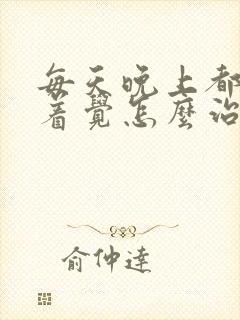 每天晚上都
着覺怎麼治
俞仲達